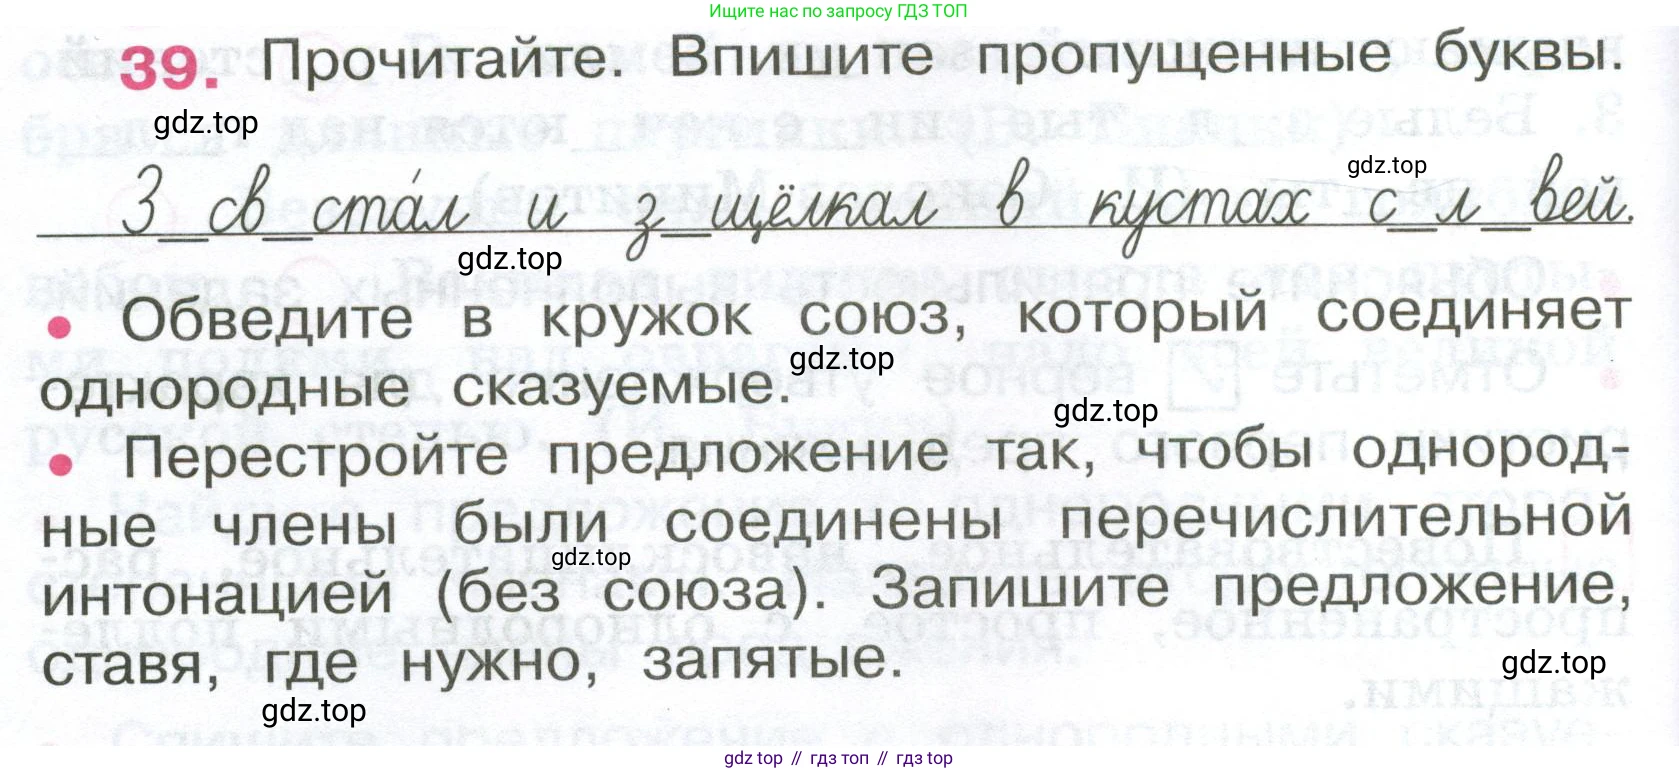 Ищите нас по запросу ГДЗ ТОП
39. Прочитайте. Впишите пропущенные буквы.
gdz.top
gdz.top
З__св__ста́л и з__щёлкал в кустах с__л__вей.
gdz.top
• Обведите в кружок союз, который соединяет
gdz.top
однородные сказуемые.
gdz.top
• Перестройте предложение так, чтобы однород-
ные члены были соединены перечислительной
gdz.top
интонацией (без союза). Запишите предложение,
ставя, где нужно, запятые.
gdz.top
gdz.top
gdz top // гдз топ // гдз top